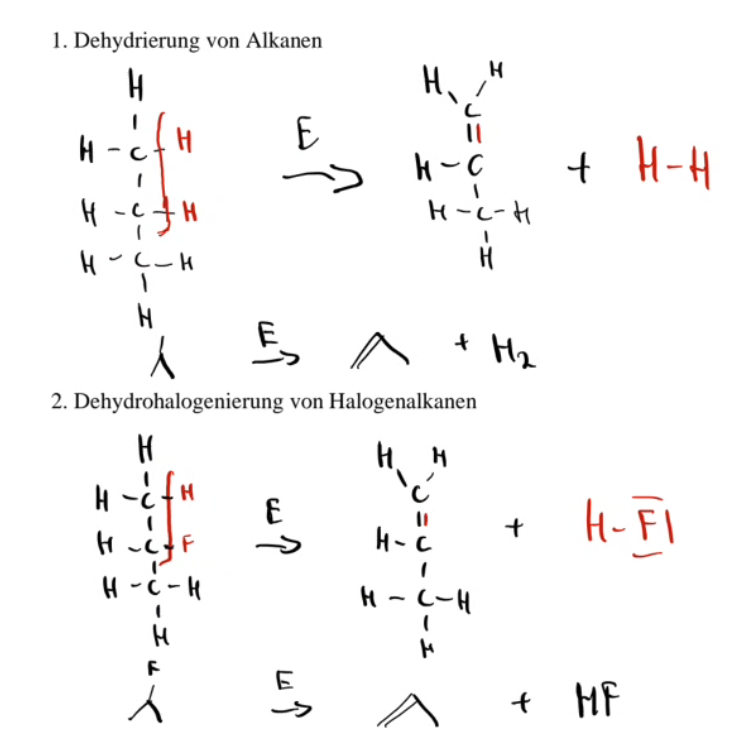 1. Dehydrierung von Alkanen
H
H - C - H
H - C - H
H - C - H
H
E
H H
C
H - C
H - C - H
H
+ H - H
E + H₂
2. Dehydrohalogenierung von Halogenalkanen
H
H - C - H
H - C - F
H - C - H
H
E
H H
C
H - C
H - C - H
H
+ H - F
F
E + HF